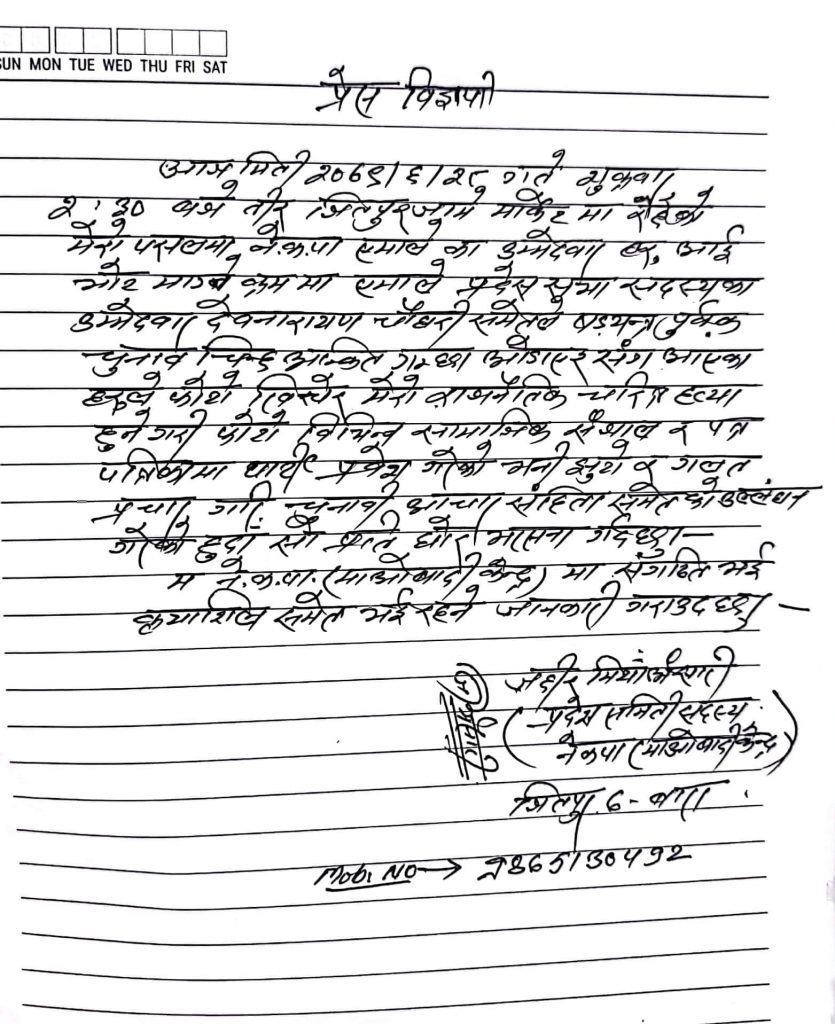 SUN MON TUE WED THU FRI SAT
प्रेस विज्ञप्ती
आज मिती २०७९/६/२८ गते शुक्रबार
२:३० बजे तीर जितपुर मार्केट मा रहेको
मेरो पसलमा ने.क.पा एमाले का उम्मेदवार हरु आई
भोट माग्ने क्रम मा एमाले प्रदेस सभा सदस्यका
उम्मेदवार देवनारायण चौधरी समेतले षडयन्त्र पुर्वक
चुनाव चिन्ह अंकित गम्छा ओढाएर संगै आएका
हरुले फोटो खिचेर मेरो राजनैतिक चरित्र हत्या
हुने गरी फोटो विभिन्न सामाजिक संजाल र पत्र
पत्रिकामा पार्टी प्रवेश गरेको भनी झुटो र गलत
प्रचार गरी चुनावी आचार संहिता समेत को उल्लंघन
गरेको हुदा सो प्रति घोर भर्त्सना गर्दछु।
म ने.क.पा. (माओबादी केन्द्र) मा संगठित भई
क्रयाशिल समेत भई रहने जानकारी गराउदछु।
मियाँ अंसारी
(प्रदेश समिती सदस्य
नेकपा (माओबादी केन्द्र)
जितपुर ६ - बारा
Mobi NO → 9865130492